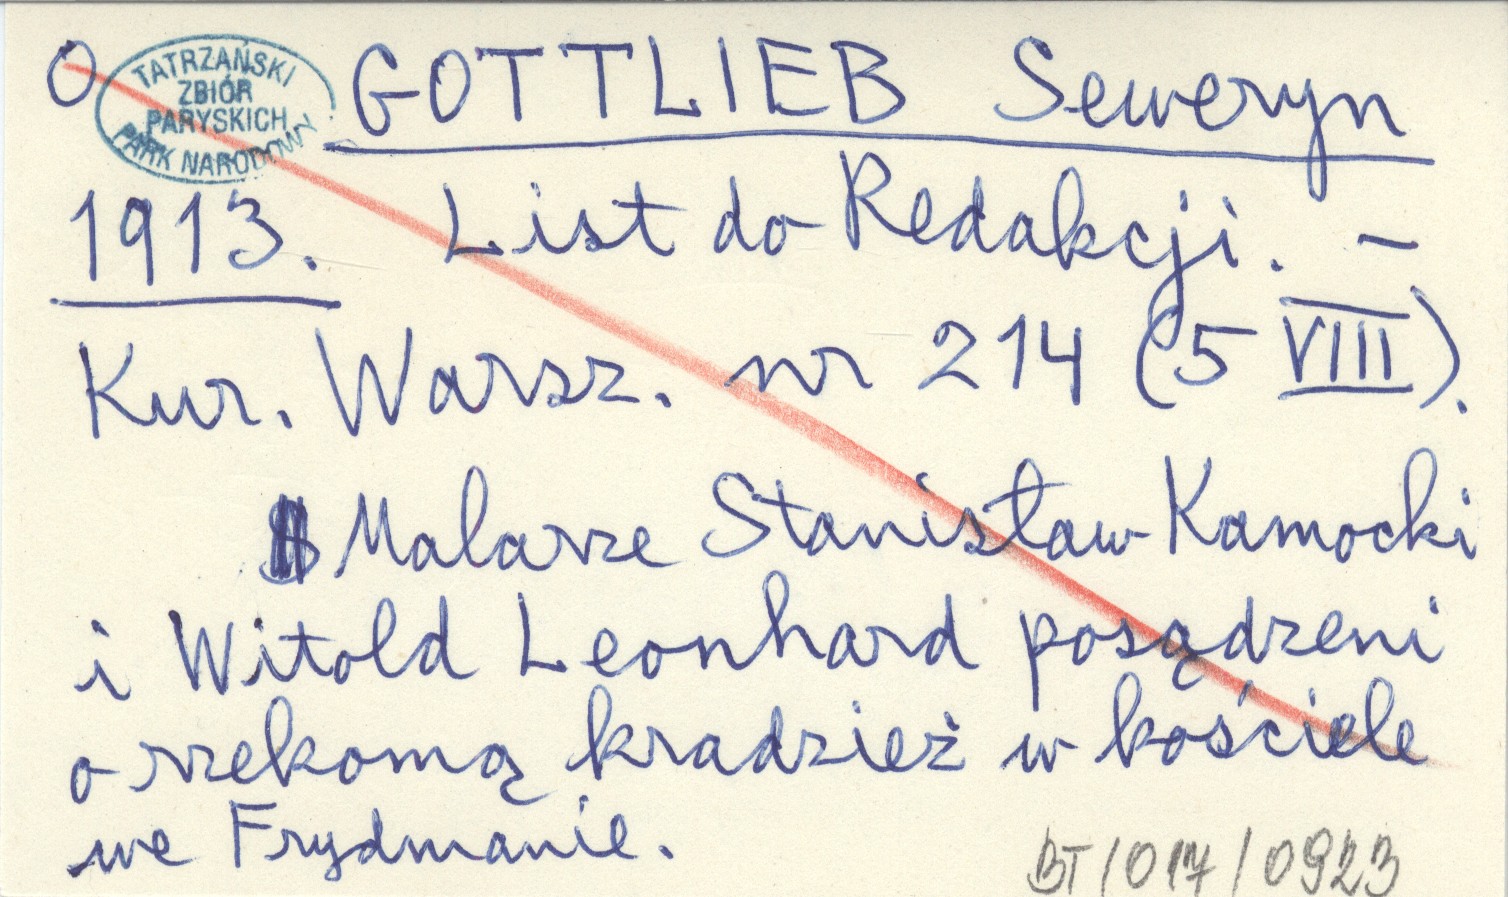 O
TATRZAŃSKI
ZBIÓR
PARYSKICH
PARK NARODOWY
GOTTLIEB Seweryn
1913. List do Redakcji. –
Kur. Warsz. nr 214 (5 VIII).
Malarze Stanisław Kamocki
i Witold Leonhard posądzeni
o rzekomą kradzież w kościele
we Frydmanie.
BT/017/0923